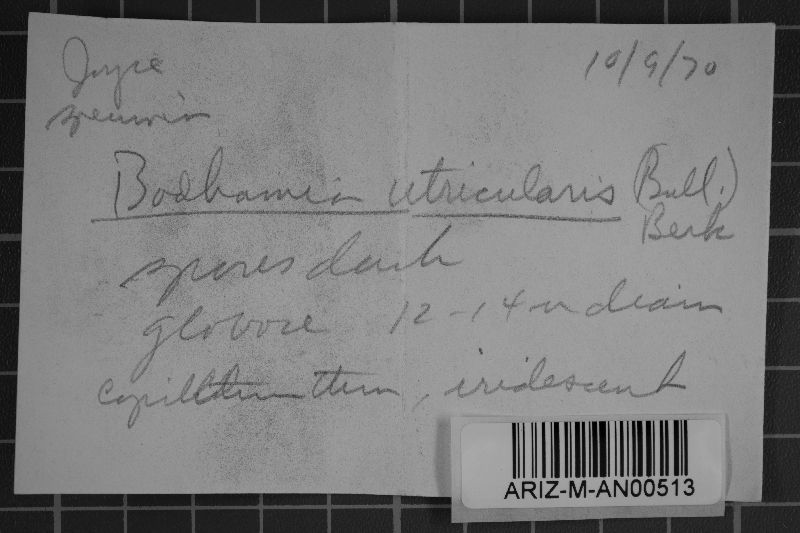 Joyce 10/9/70
specimen
Badhamia utricularis (Bull.)
Berk
spores dark
globose 12-14 u diam
capillitium, iridescent
ARIZ-M-AN00513